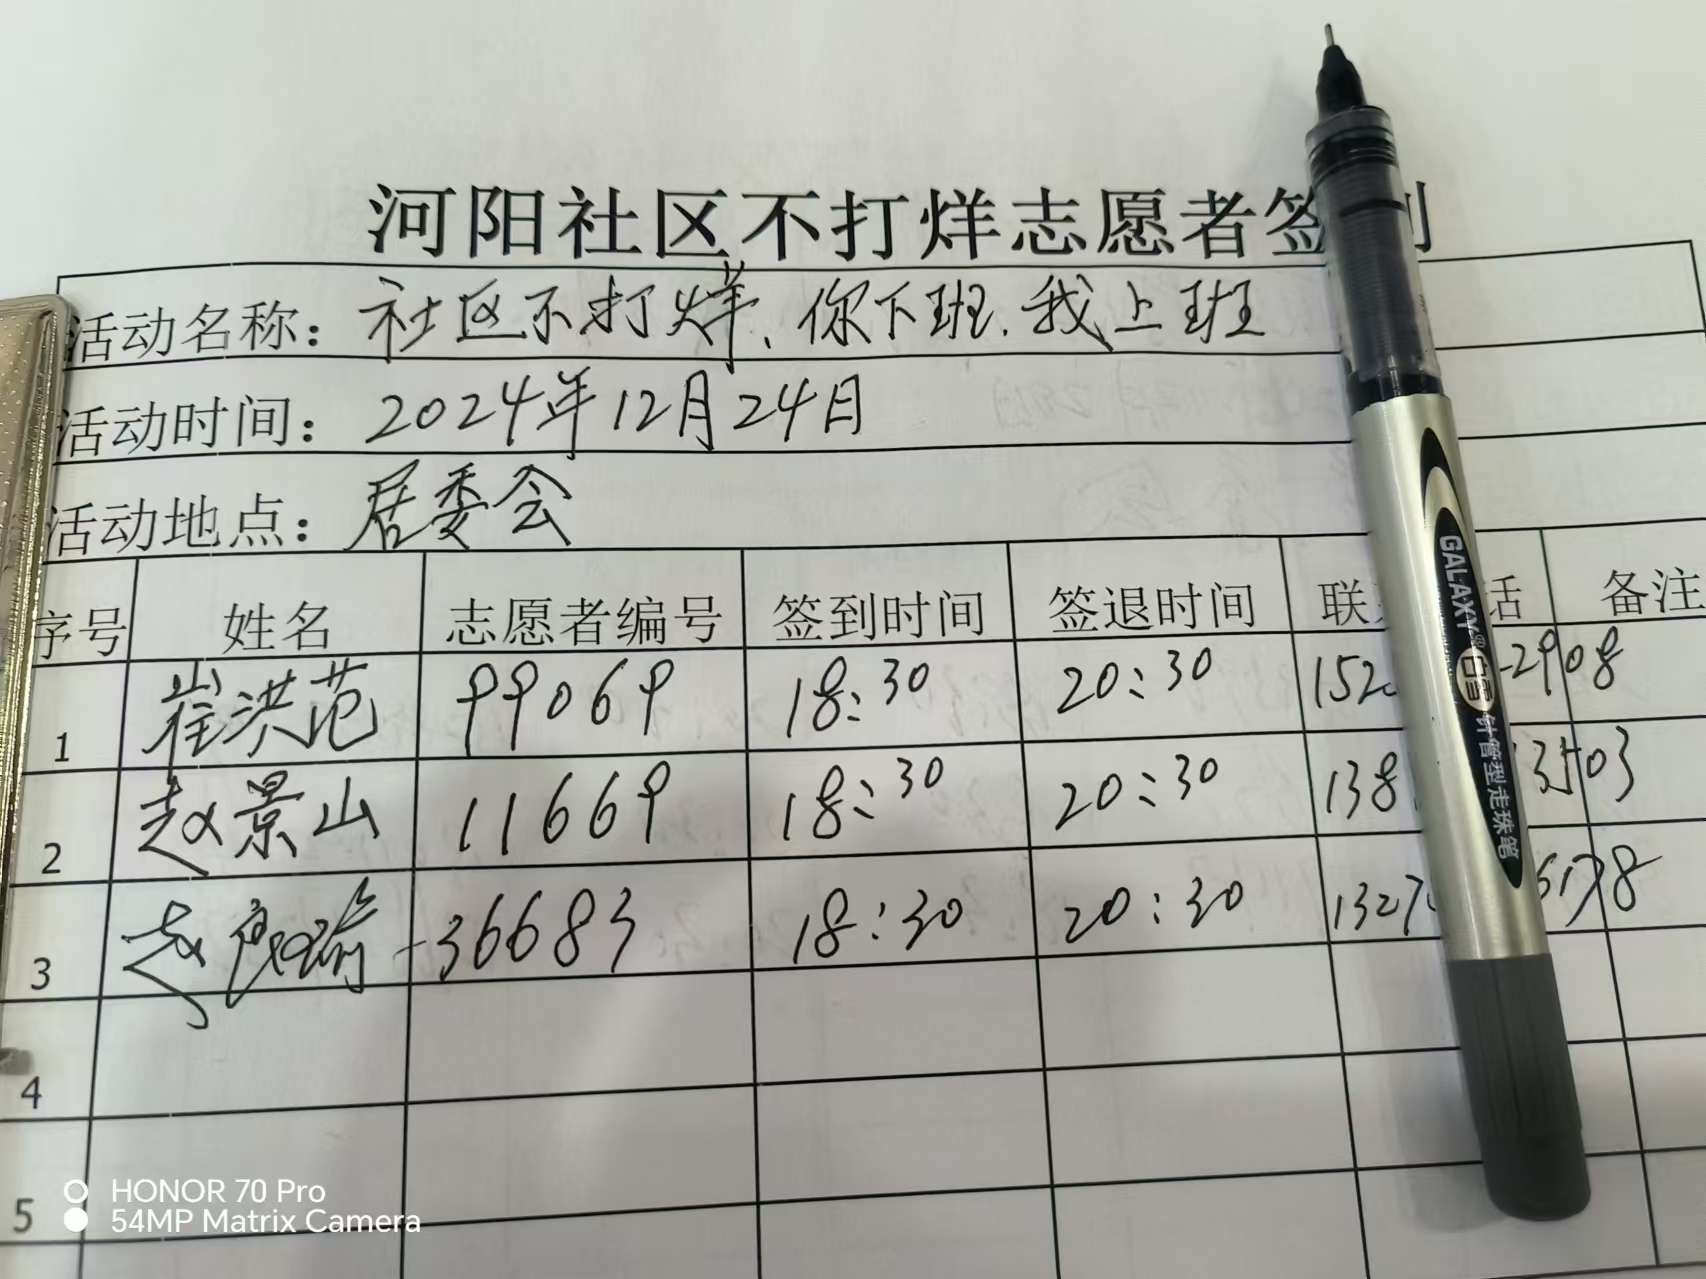 河阳社区不打烊志愿者签到
活动名称：社区不打烊、你下班、我上班
活动时间：2024年12月24日
活动地点：居委会
序号 姓名 志愿者编号 签到时间 签退时间 联 话 备注
1 崔洪范 99069 18:30 20:30 152 2908
2 赵景山 11669 18:30 20:30 138 3503
3 赵 36683 18:30 20:30 1327 6178
4
5
GALAXY® 白雪 针管型走珠笔
HONOR 70 Pro
54MP Matrix Camera